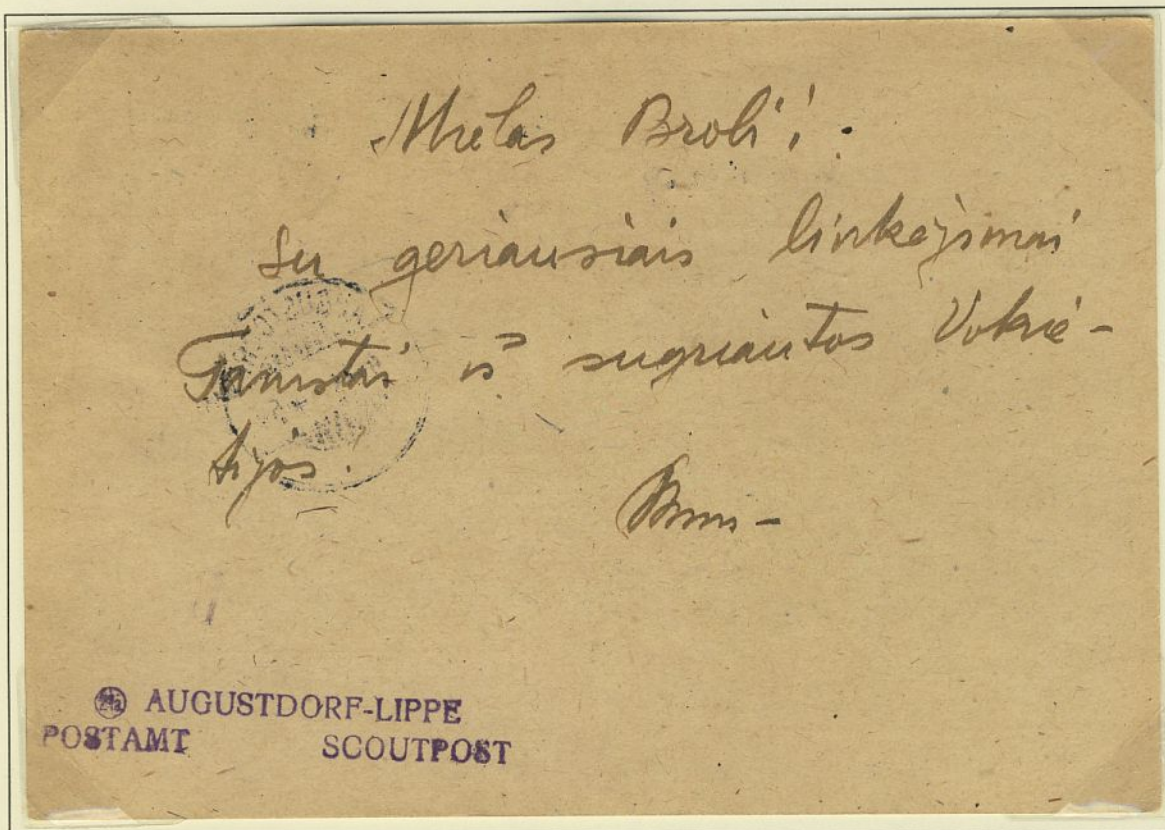 Mielas Broli!
Su geriausiais linkėjimai
Tamstai iš sugriautos Vokie-
tijos.
21a AUGUSTDORF-LIPPE
POSTAMT SCOUTPOST